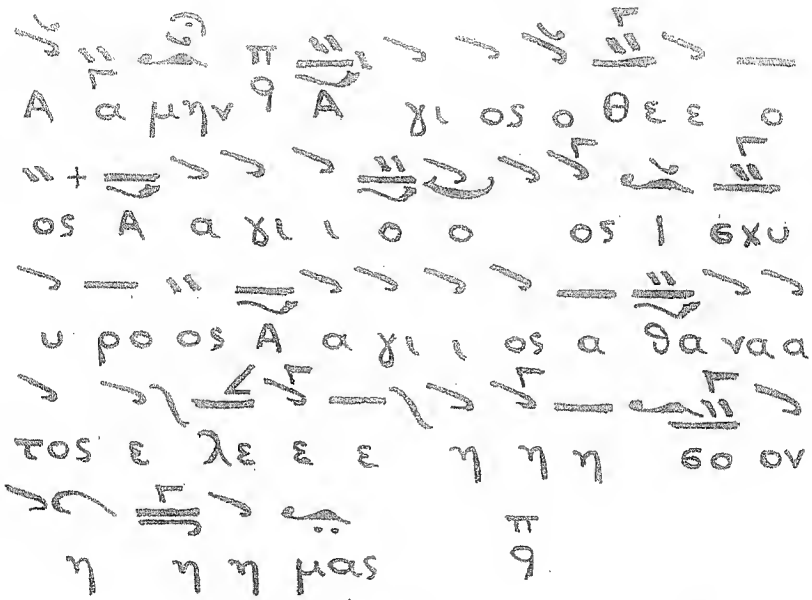 Α α μην π q Α γι ος ο Θε ε ο
ος Α α γι ι ο ο ος Ι σχυ
υ ρο ος Α α γι ι ος α θα να α
τος ε λε ε ε η η η σο ον
η η η μας π q